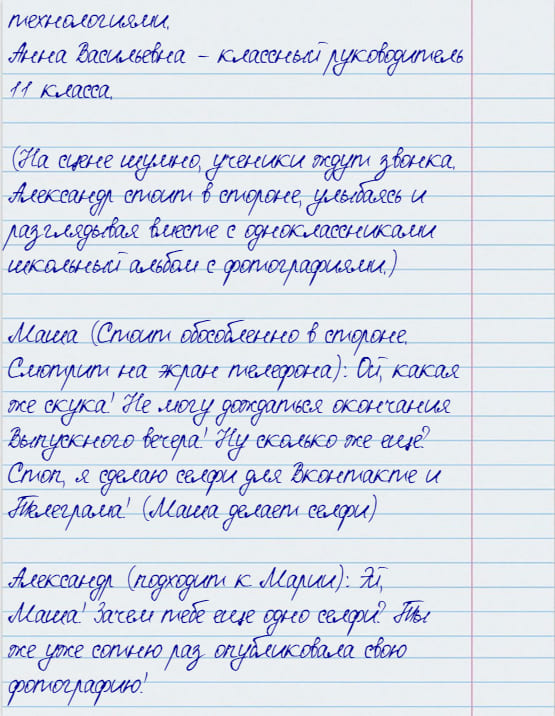 технологиями.
Анна Васильевна – классный руководитель
11 класса.
(На сцене шумно, ученики ждут звонка.
Александр стоит в стороне, улыбаясь и
разглядывая вместе с одноклассниками
школьный альбом с фотографиями.)
Маша (Стоит обособленно в стороне.
Смотрит на экран телефона): Ой, какая
же скука! Не могу дождаться окончания
Выпускного вечера! Ну сколько же еще?
Стоп, я сделаю селфи для Вконтакте и
Телеграма! (Маша делает селфи)
Александр (подходит к Марии): Эй,
Маша! Зачем тебе еще одно селфи? Ты
же уже сотню раз опубликовала свою
фотографию!